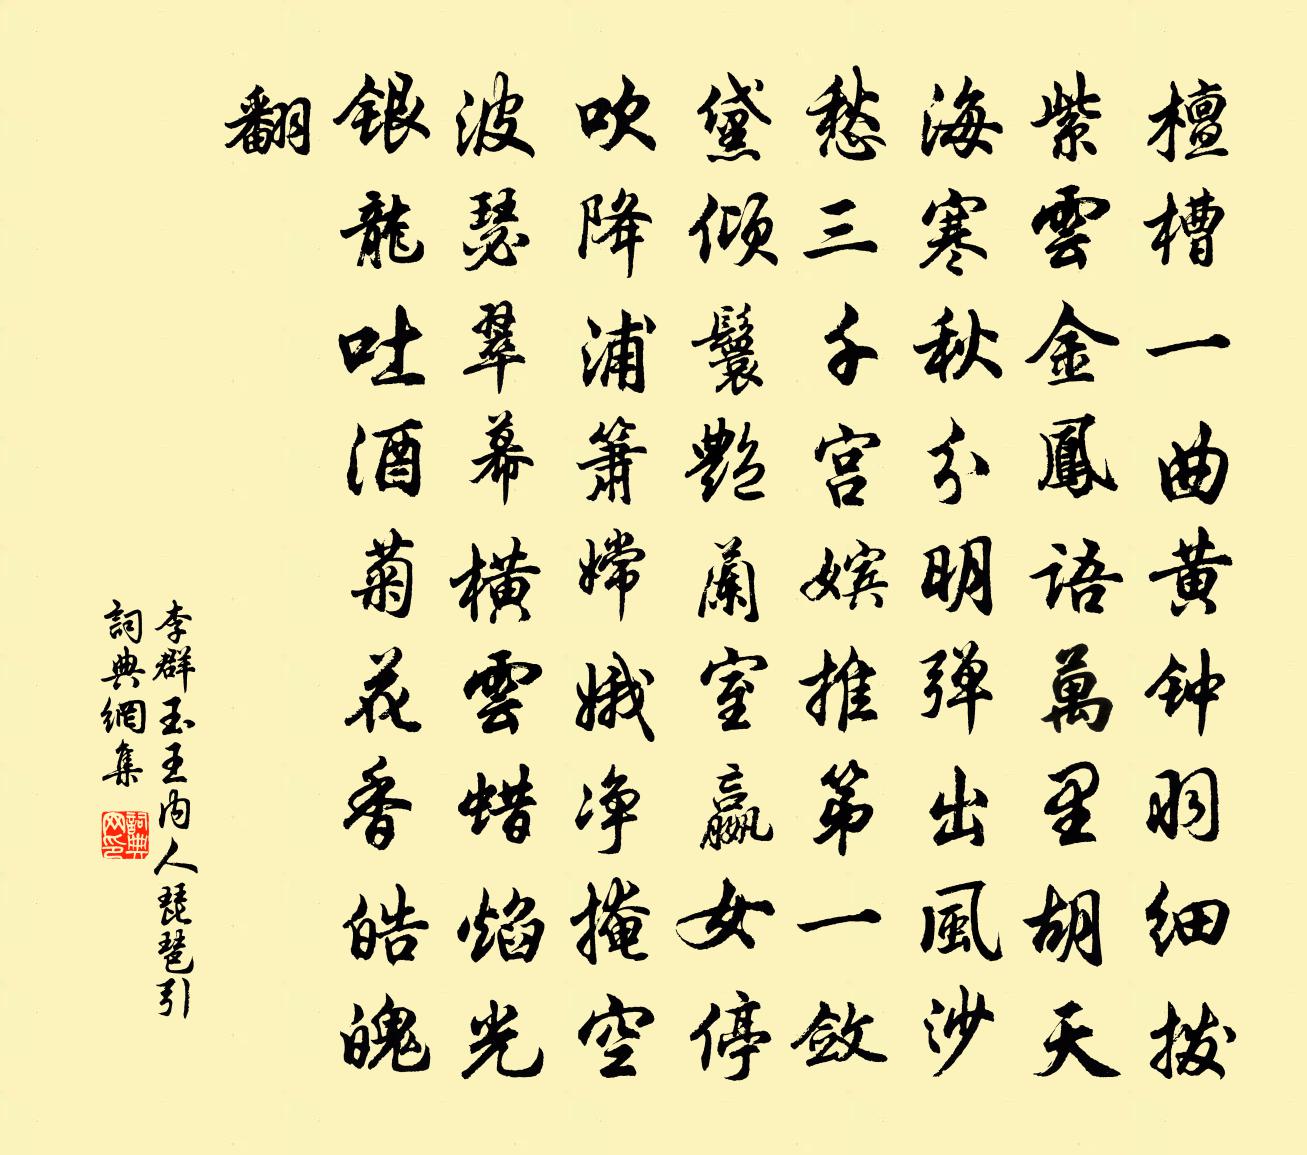 檀槽一曲黄钟羽细拨
紫雲金鳳語萬里胡天
海寒秋分明弹出風沙
愁三千宫嫔推第一敛
黛倾鬟艷蘭室嬴女停
吹降浦箫嫦娥净掩空
波瑟翠幕横雲蜡焰光
銀龍吐酒菊花香皓魄
翻
李群玉王内人琵琶引
詞典網集
詞典
网印